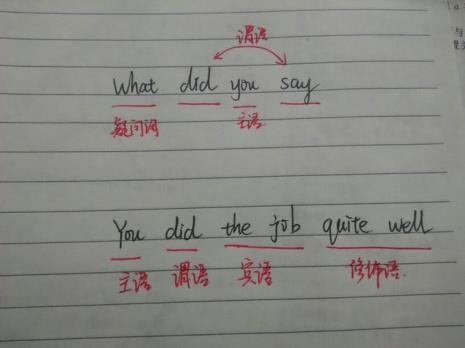 谓语
What did you say
疑问词 主语
You did the job quite well
主语 谓语 宾语 修饰语